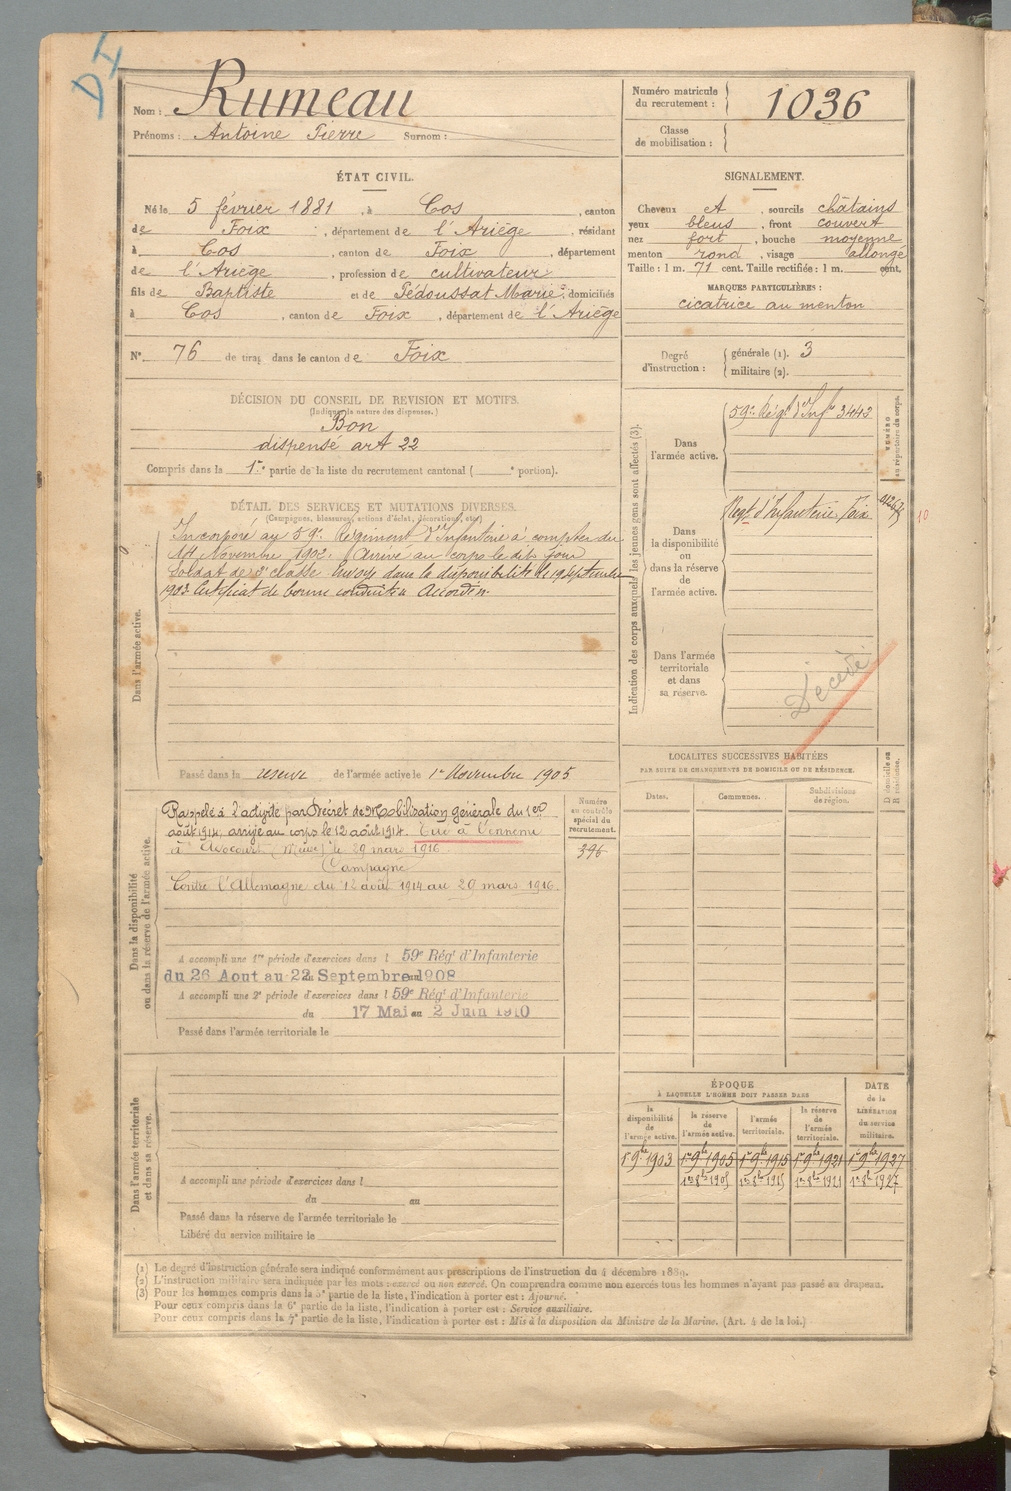 DI
Nom : Rumeau
Prénoms : Antoine Pierre Surnom :
Numéro matricule du recrutement : 1036
Classe de mobilisation :
ÉTAT CIVIL.
Né le 5 février 1881, à Cos, canton
de Foix, département de l'Ariège, résidant
à Cos, canton de Foix, département
de l'Ariège, profession de cultivateur
fils de Baptiste et de Pédoussat Marie, domiciliés
à Cos, canton de Foix, département de l'Ariège
N° 76 de tirage dans le canton de Foix
SIGNALEMENT.
Cheveux , sourcils châtains
yeux bleus, front couvert
nez fort, bouche moyenne
menton rond, visage allongé
Taille : 1 m. 71 cent. Taille rectifiée : 1 m. cent.
MARQUES PARTICULIÈRES :
cicatrice au menton
Degré d'instruction : générale (1). 3
militaire (2).
DÉCISION DU CONSEIL DE REVISION ET MOTIFS.
(Indiquer la nature des dispenses.)
Bon
dispensé art 22
Compris dans la 1re partie de la liste du recrutement cantonal ( e portion).
DÉTAIL DES SERVICES ET MUTATIONS DIVERSES.
(Campagnes, blessures, actions d'éclat, décorations, etc.)
Dans l'armée active.
Incorporé au 59e Régiment d'Infanterie à compter du
14 Novembre 1902. Arrivé au corps le dit jour
Soldat de 2e classe. Envoyé dans la disponibilité le 19 septembre
1903. Certificat de bonne conduite Accordé.
Passé dans la réserve de l'armée active le 1er Novembre 1905
Indication des corps auxquels les jeunes gens sont affectés (3).
Dans l'armée active.
59e Régt d'Infie 3443
NUMÉRO au répertoire du corps.
Dans la disponibilité ou dans la réserve de l'armée active.
Regt d'Infanterie, Foix
10
Dans l'armée territoriale et dans sa réserve.
Décédé
LOCALITÉS SUCCESSIVES HABITÉES
PAR SUITE DE CHANGEMENTS DE DOMICILE OU DE RÉSIDENCE.
Dates. Communes. Subdivisions de région. D domicile ou R résidence.
Dans la disponibilité ou dans la réserve de l'armée active.
Numéro au contrôle spécial du recrutement.
396
Rappelé à l'activité par Décret de Mobilisation générale du 1er
août 1914, arrivé au corps le 12 août 1914. Tué à l'ennemi
à Avocourt (Meuse) le 29 mars 1916.
Campagne
Contre l'Allemagne du 12 août 1914 au 29 mars 1916.
A accompli une 1re période d'exercices dans l 59e Régt d'Infanterie
du 26 Aout au 22 Septembre 1908
A accompli une 2e période d'exercices dans l 59e Régt d'Infanterie
du 17 Mai au 2 Juin 1910
Passé dans l'armée territoriale le
Dans l'armée territoriale et dans sa réserve.
A accompli une période d'exercices dans l
du au
Passé dans la réserve de l'armée territoriale le
Libéré du service militaire le
ÉPOQUE
À LAQUELLE L'HOMME DOIT PASSER DANS
DATE de la LIBÉRATION du service militaire.
la disponibilité de l'armée active. la réserve de l'armée active. l'armée territoriale. la réserve de l'armée territoriale.
1er 9bre 1903 1er 9bre 1905 1er 9bre 1915 1er 9bre 1921 1er 9bre 1927
1er 8bre 1905 1er 8bre 1915 1er 8bre 1921 1er 8bre 1927
(1) Le degré d'instruction générale sera indiqué conformément aux prescriptions de l'instruction du 4 décembre 1889.
(2) L'instruction militaire sera indiquée par les mots : exercé ou non exercé. On comprendra comme non exercés tous les hommes n'ayant pas passé au drapeau.
(3) Pour les hommes compris dans la 5e partie de la liste, l'indication à porter est : Ajourné.
Pour ceux compris dans la 6e partie de la liste, l'indication à porter est : Service auxiliaire.
Pour ceux compris dans la 7e partie de la liste, l'indication à porter est : Mis à la disposition du Ministre de la Marine. (Art. 4 de la loi.)